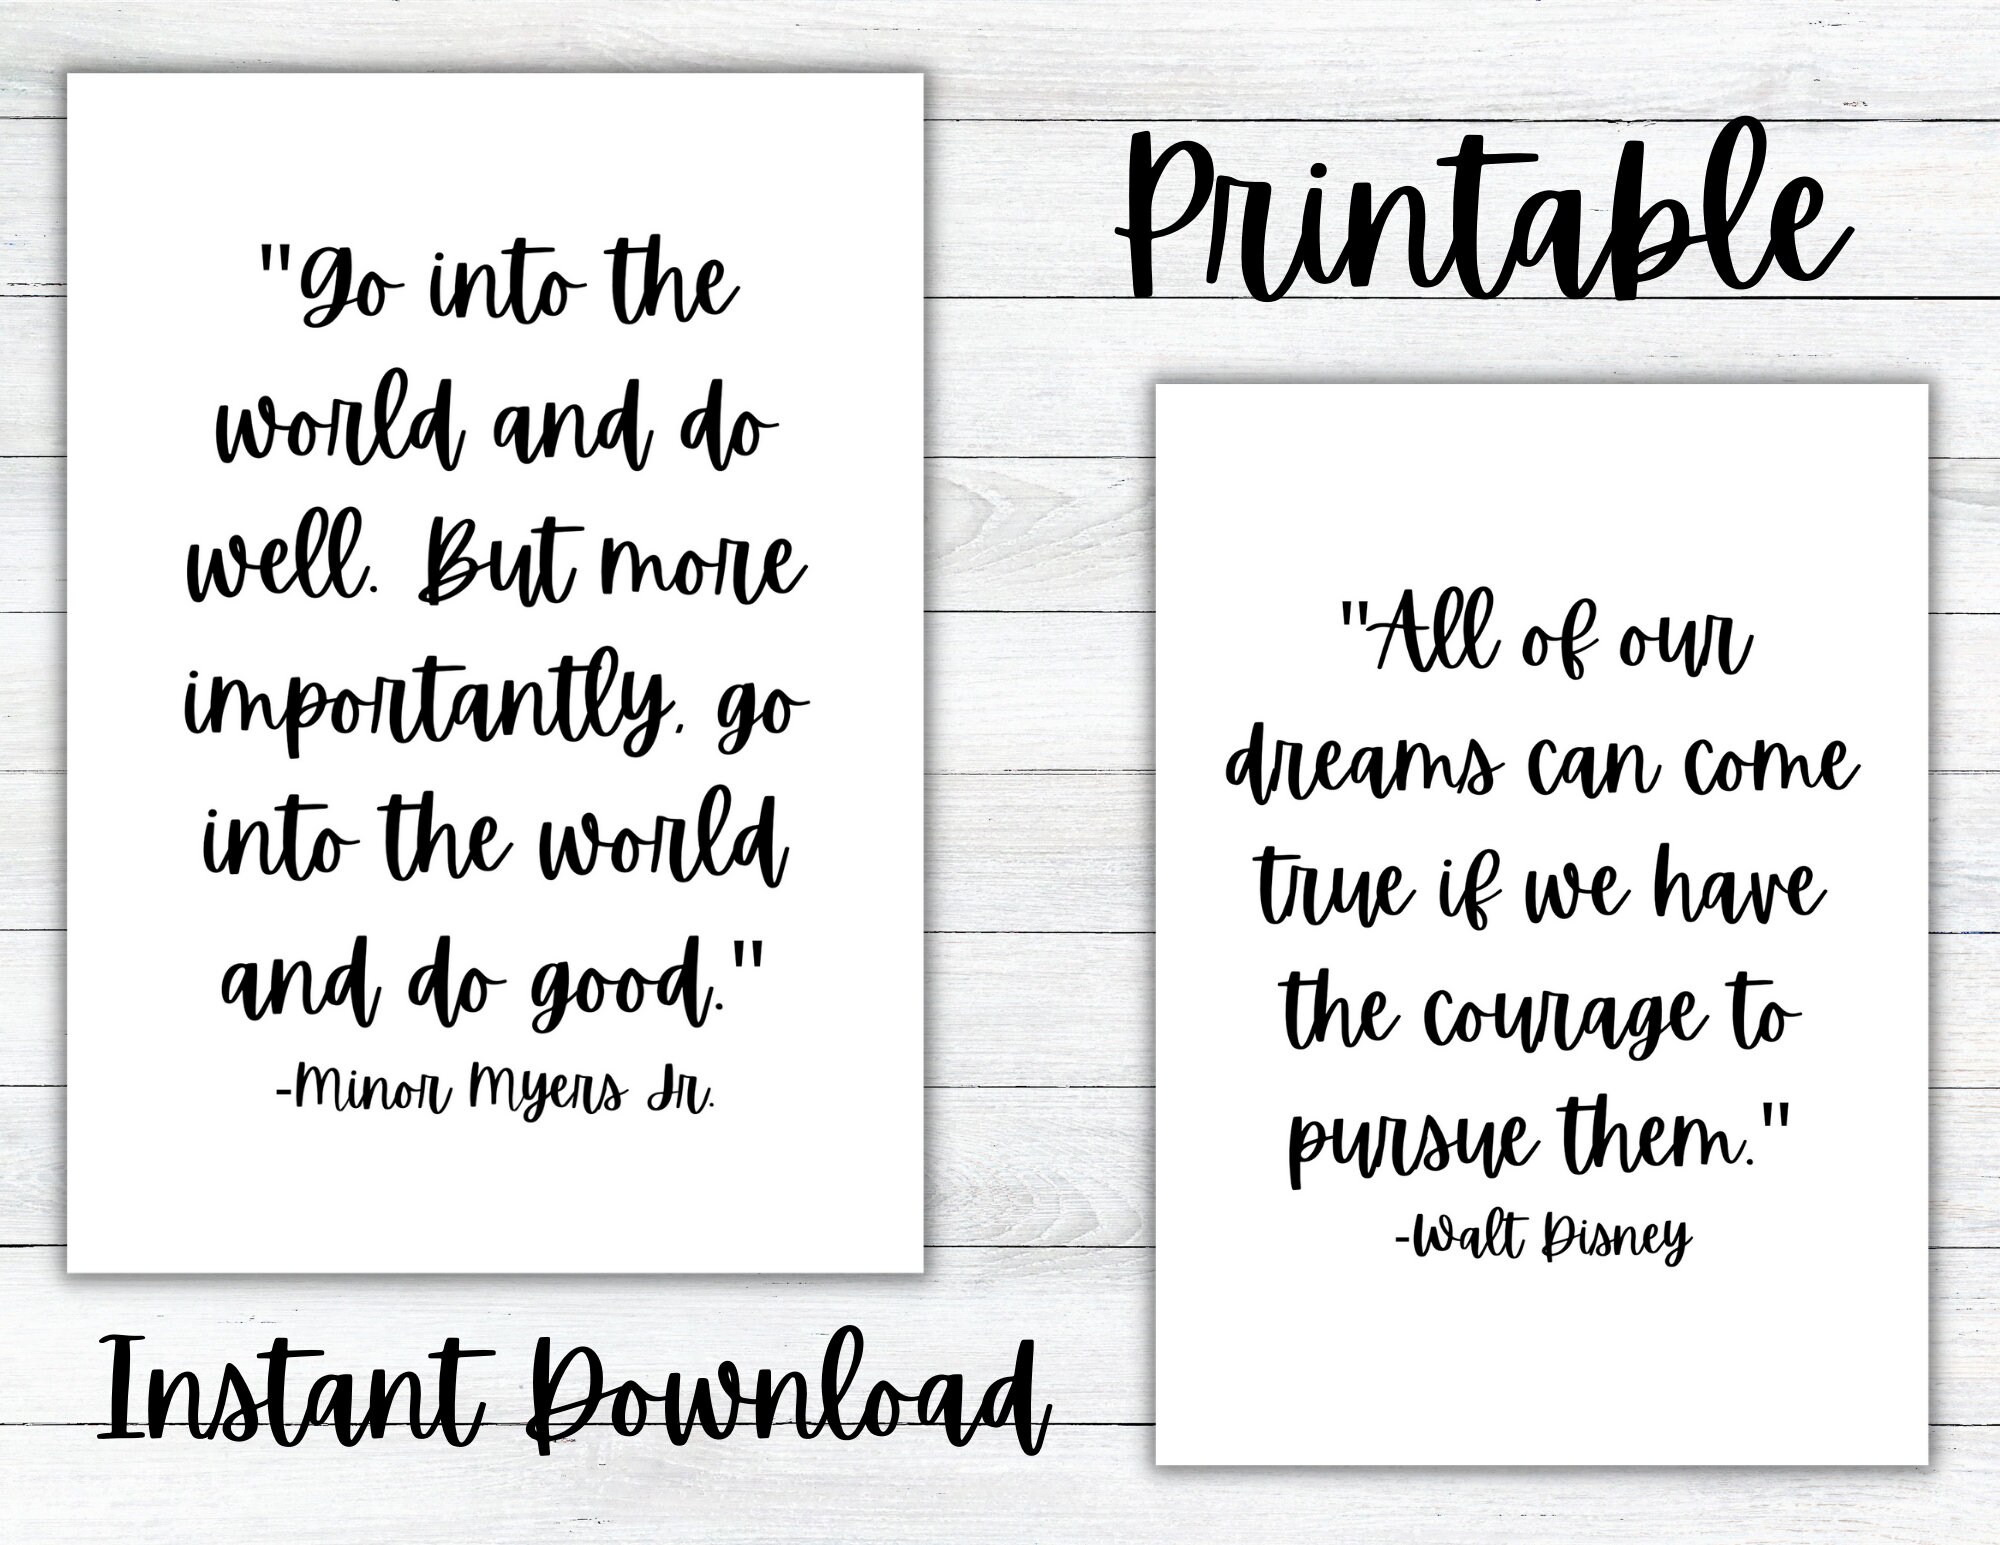 "Go into the
world and do
well. But more
importantly, go
into the world
and do good."
-Minor Myers Jr.
Printable
"All of our
dreams can come
true if we have
the courage to
pursue them."
-Walt Disney
Instant Download